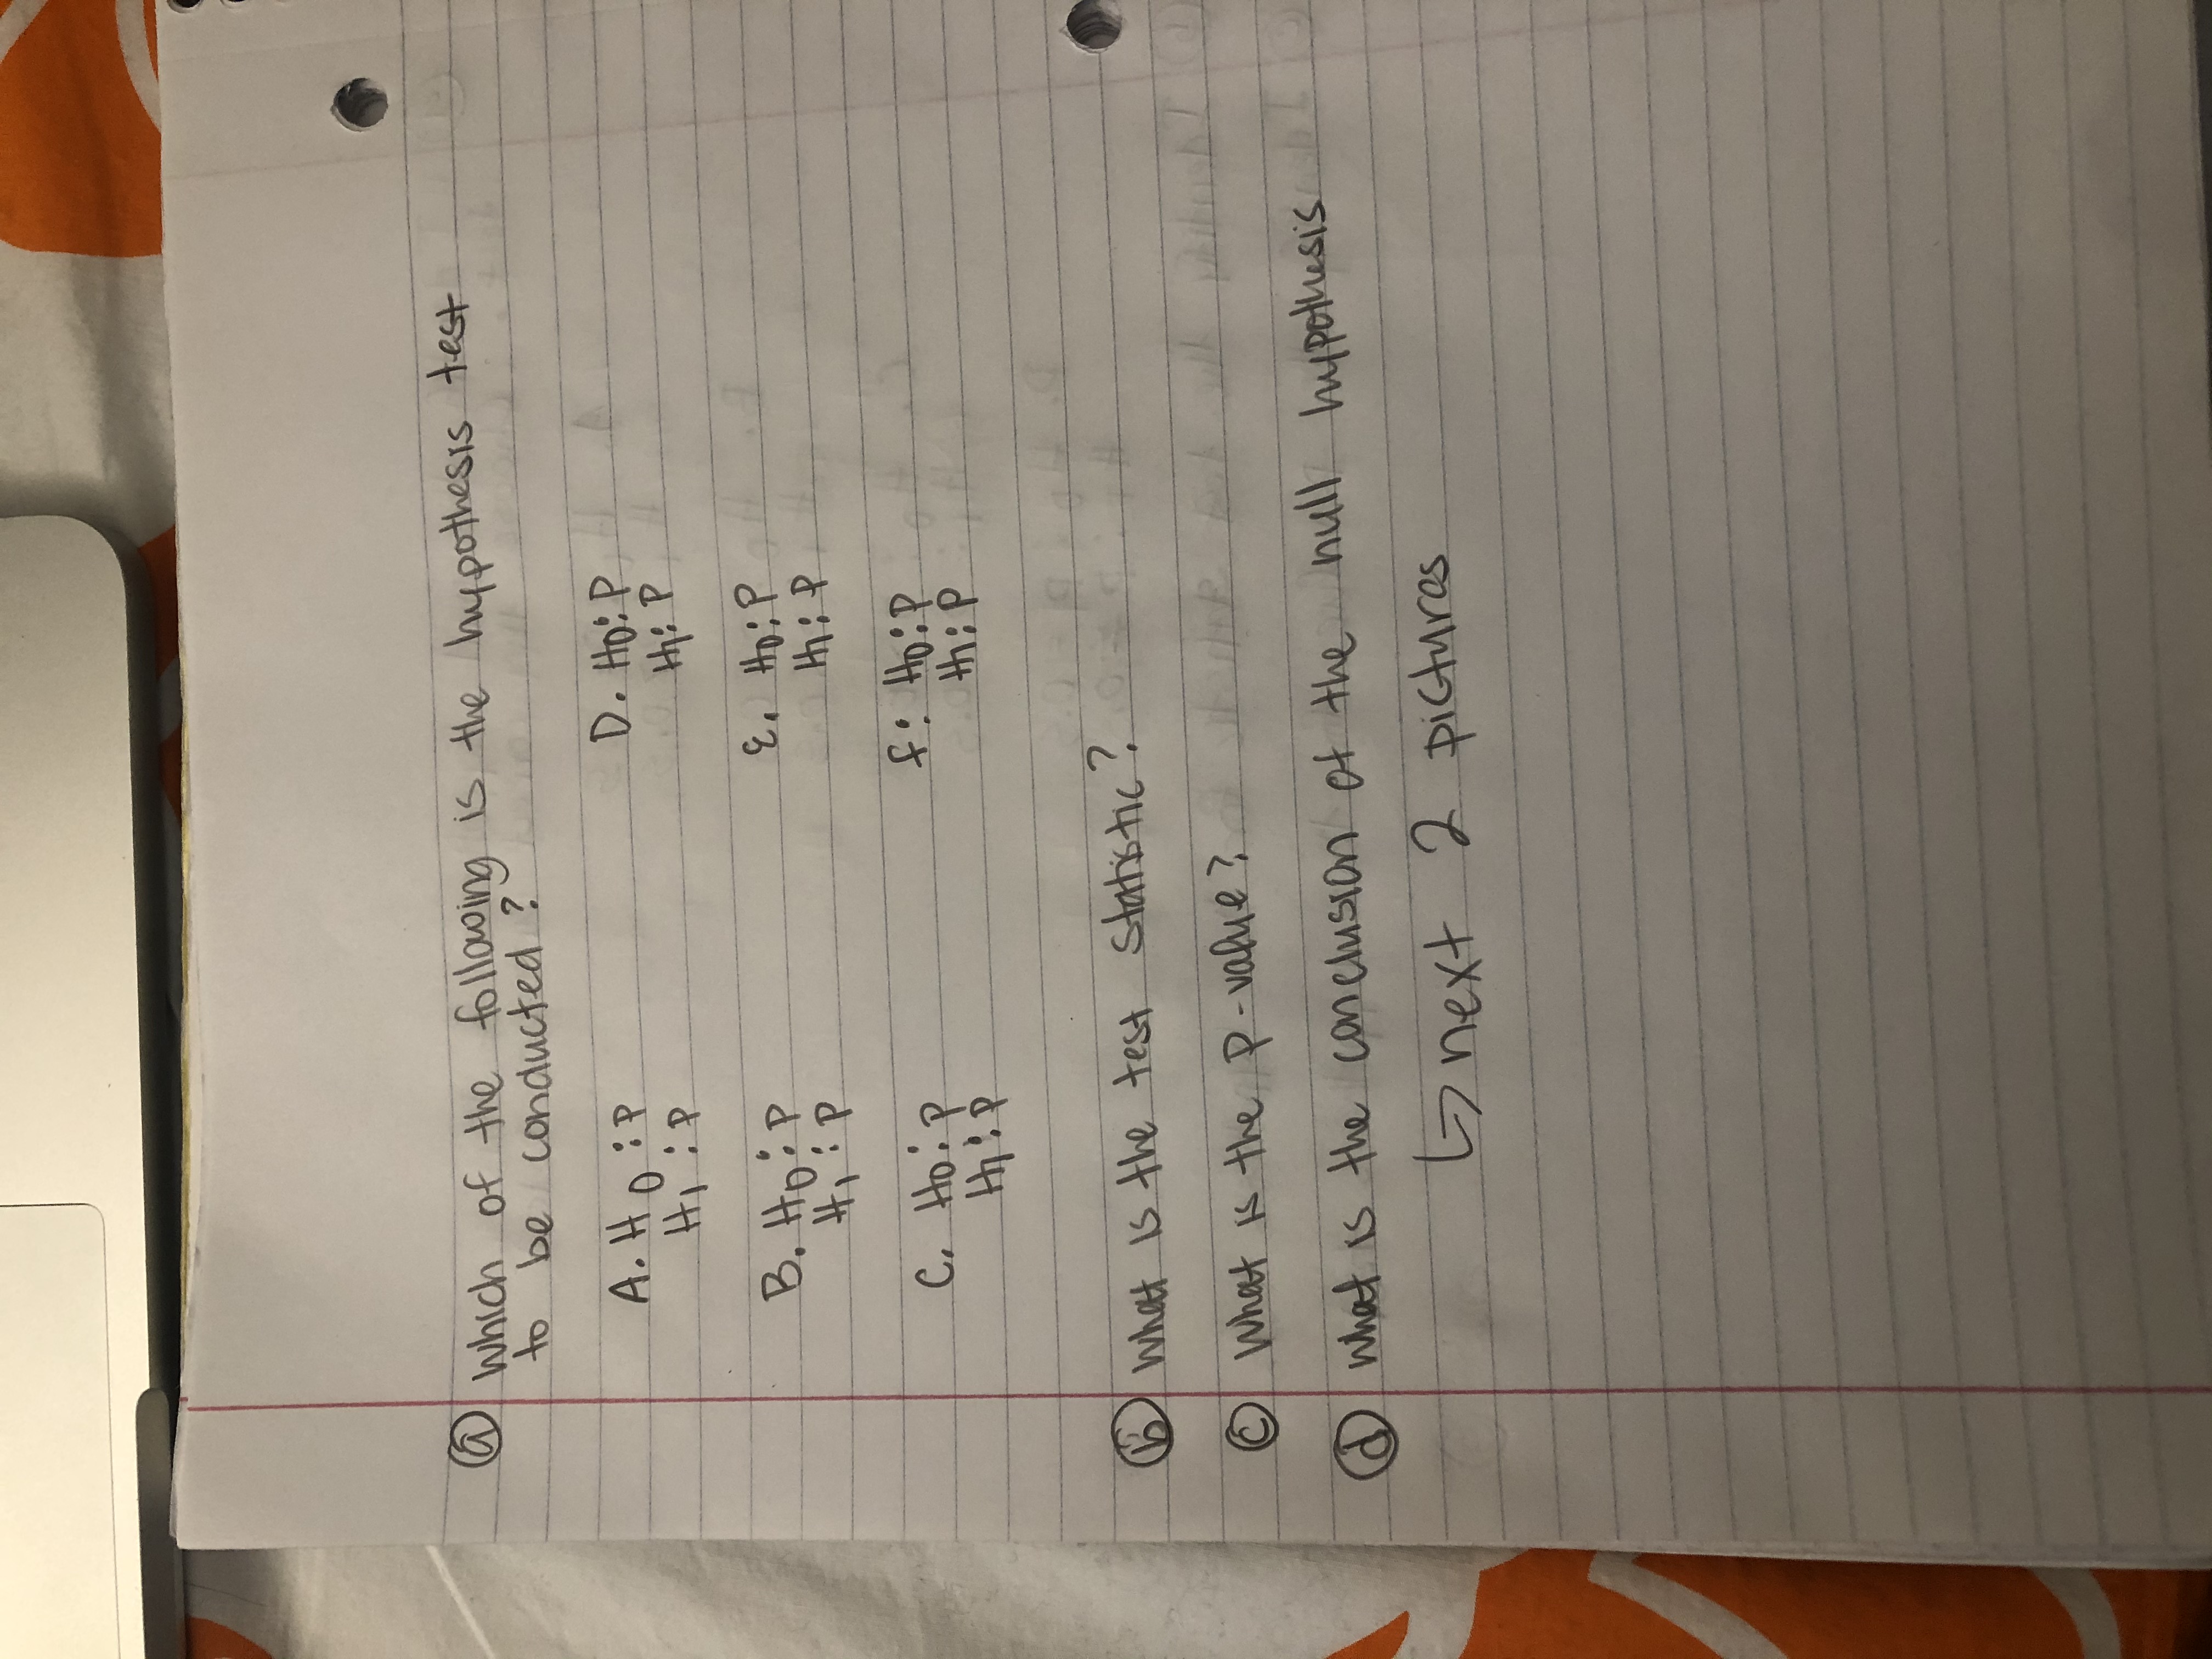 (a) Which of the following is the hypothesis test
to be conducted?
A. H0:P
H1:P
D. H0:P
H1:P
B. H0:P
H1:P
E. H0:P
H1:P
C. H0:P
H1:P
f: H0:P
H1:P
(b) What is the test statistic?
(c) What is the P-value?
(d) What is the conclusion of the null hypothesis
↳ next 2 pictures